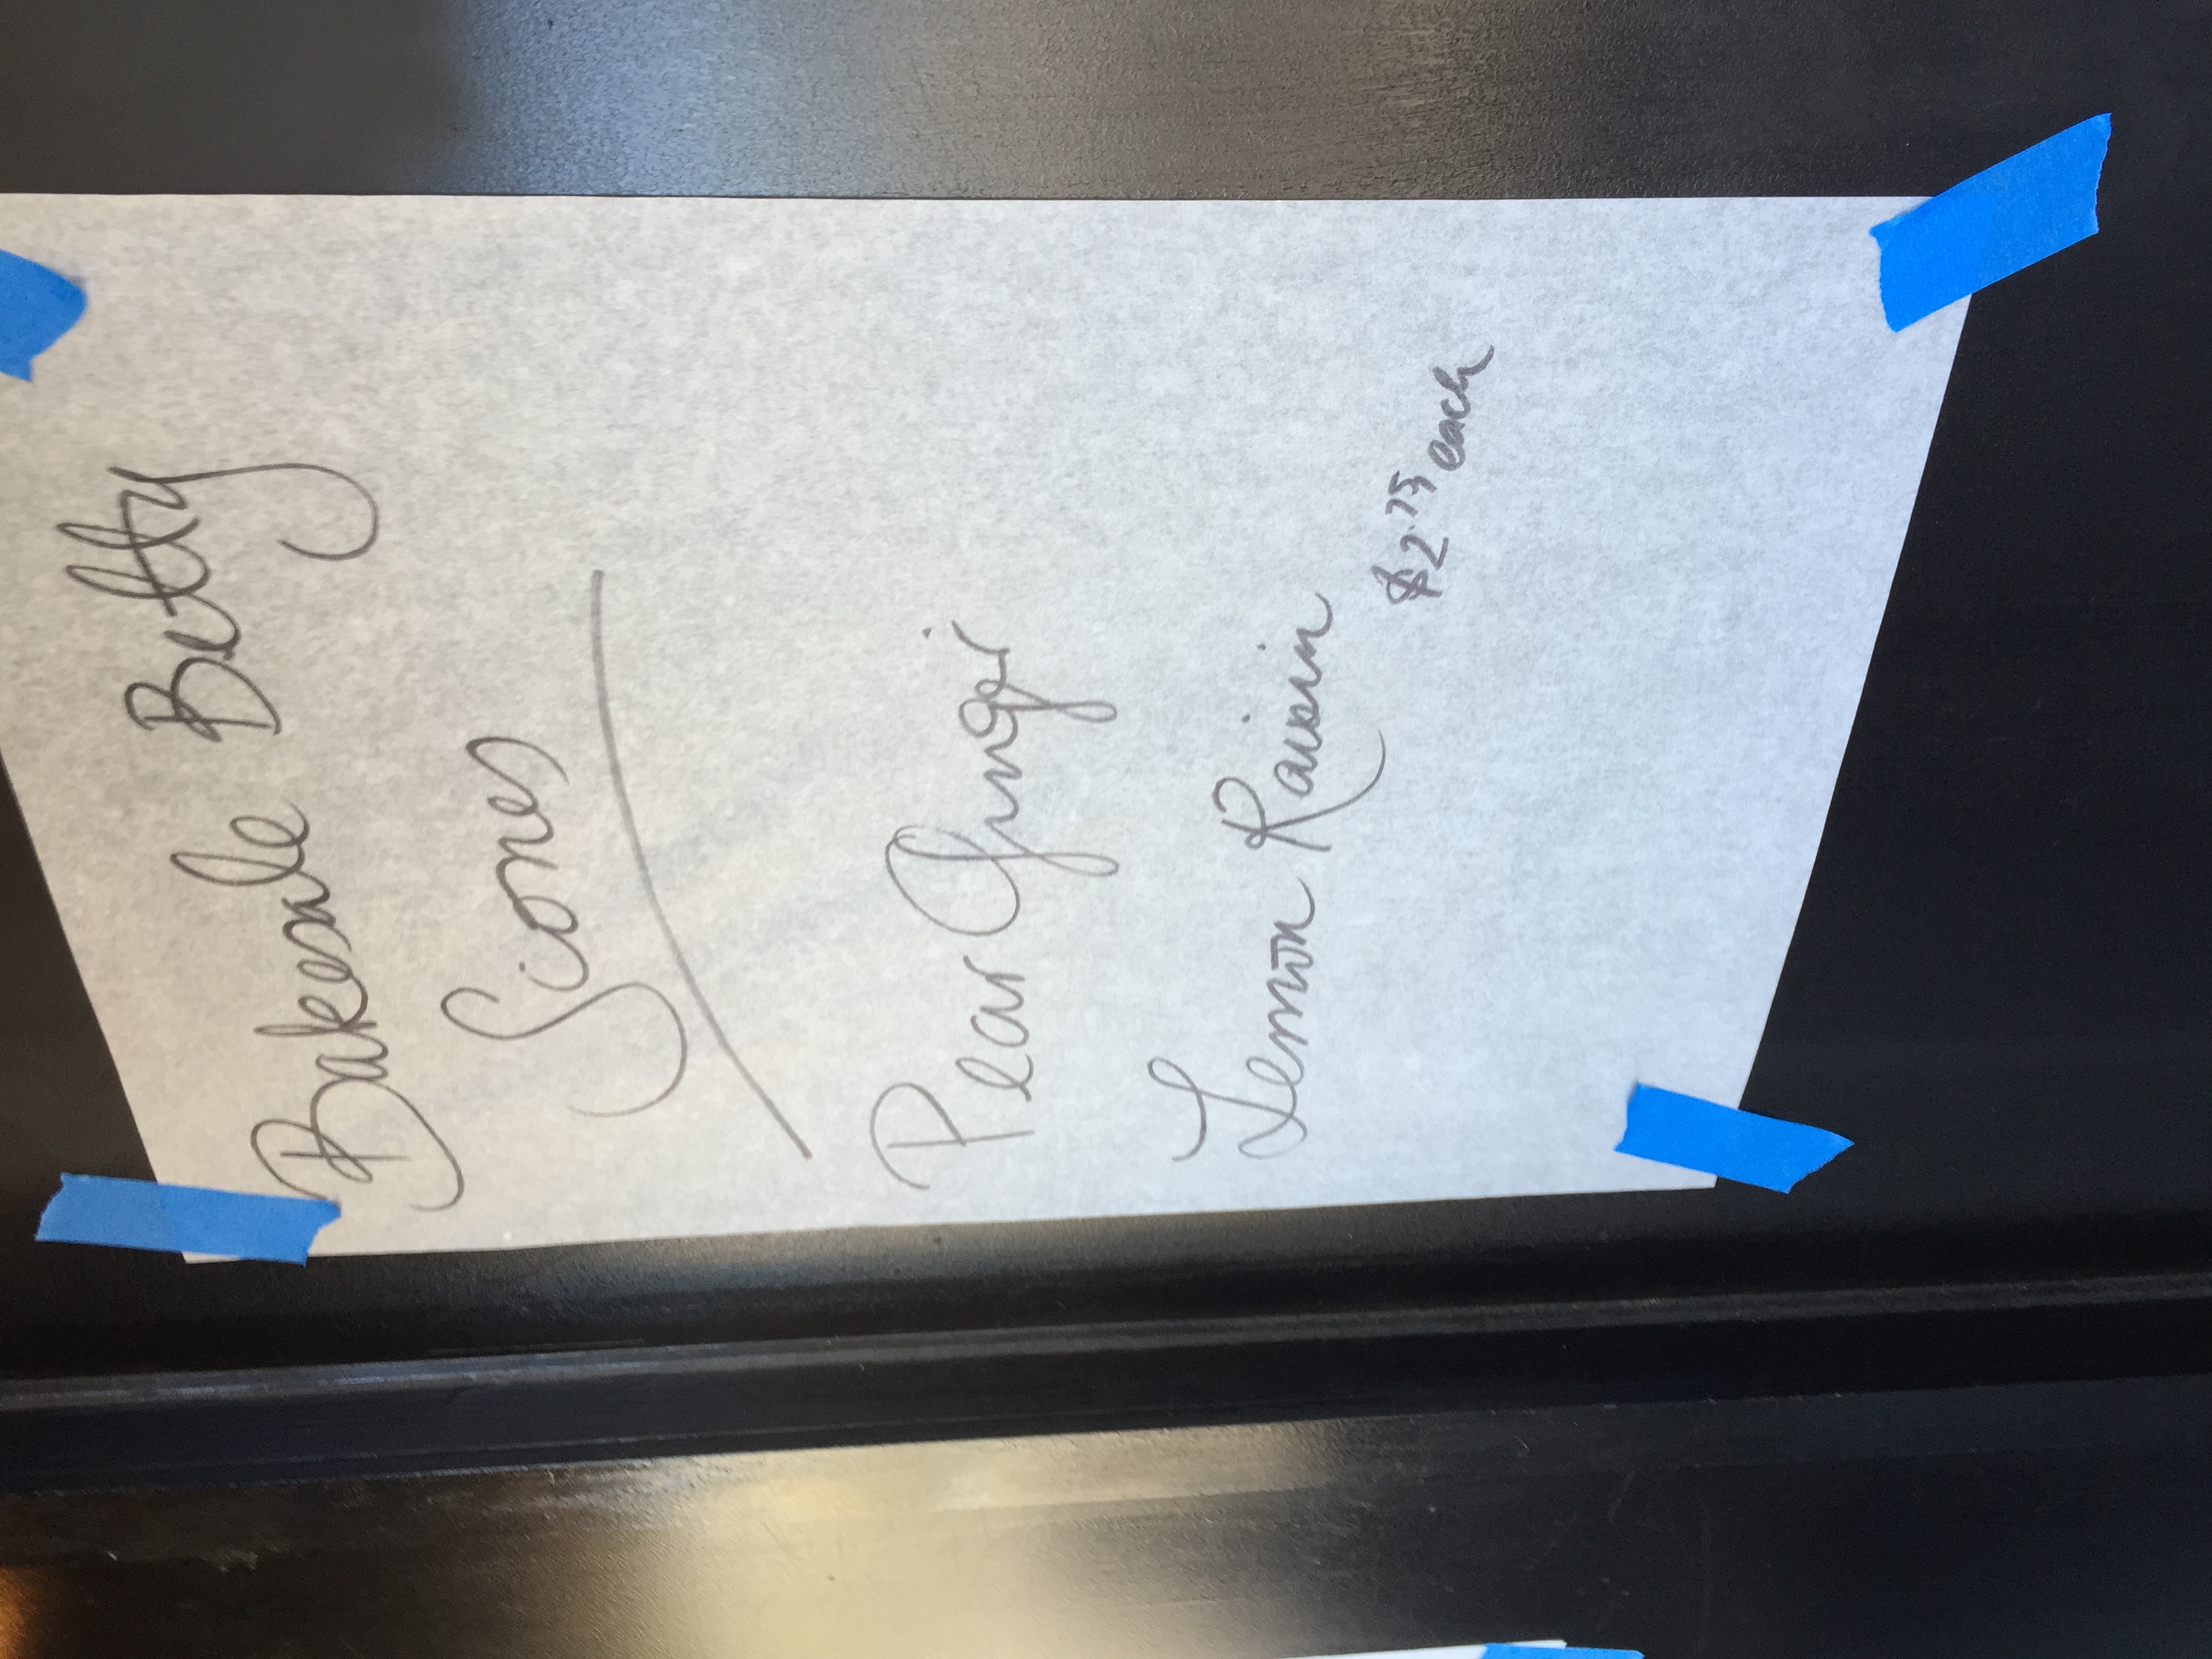 Bakesale Betty
Scones
Pear Ginger
Lemon Raisin
$2.75 each